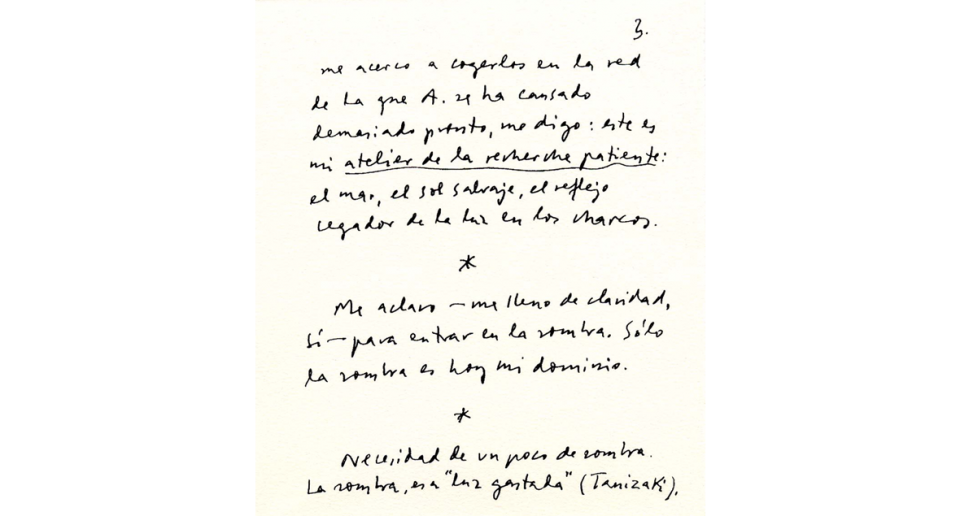 3.
me acerco a cogerlos en la red
de la que A. se ha cansado
demasiado pronto, me digo: este es
mi atelier de la recherche patiente:
el mar, el sol salvaje, el reflejo
cegador de la luz en los charcos.
*
Me aclaro – me lleno de claridad,
sí – para entrar en la sombra. Sólo
la sombra es hoy mi dominio.
*
Necesidad de un poco de sombra.
La sombra, esa "luz gastada" (Tanizaki).